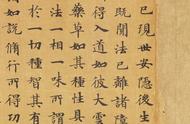 已現世安隱後生
既聞法已離諸障
得入道如彼大雲
藥草如其種性具
法一相一味所謂
於一切種智其有
如說脩行所得功